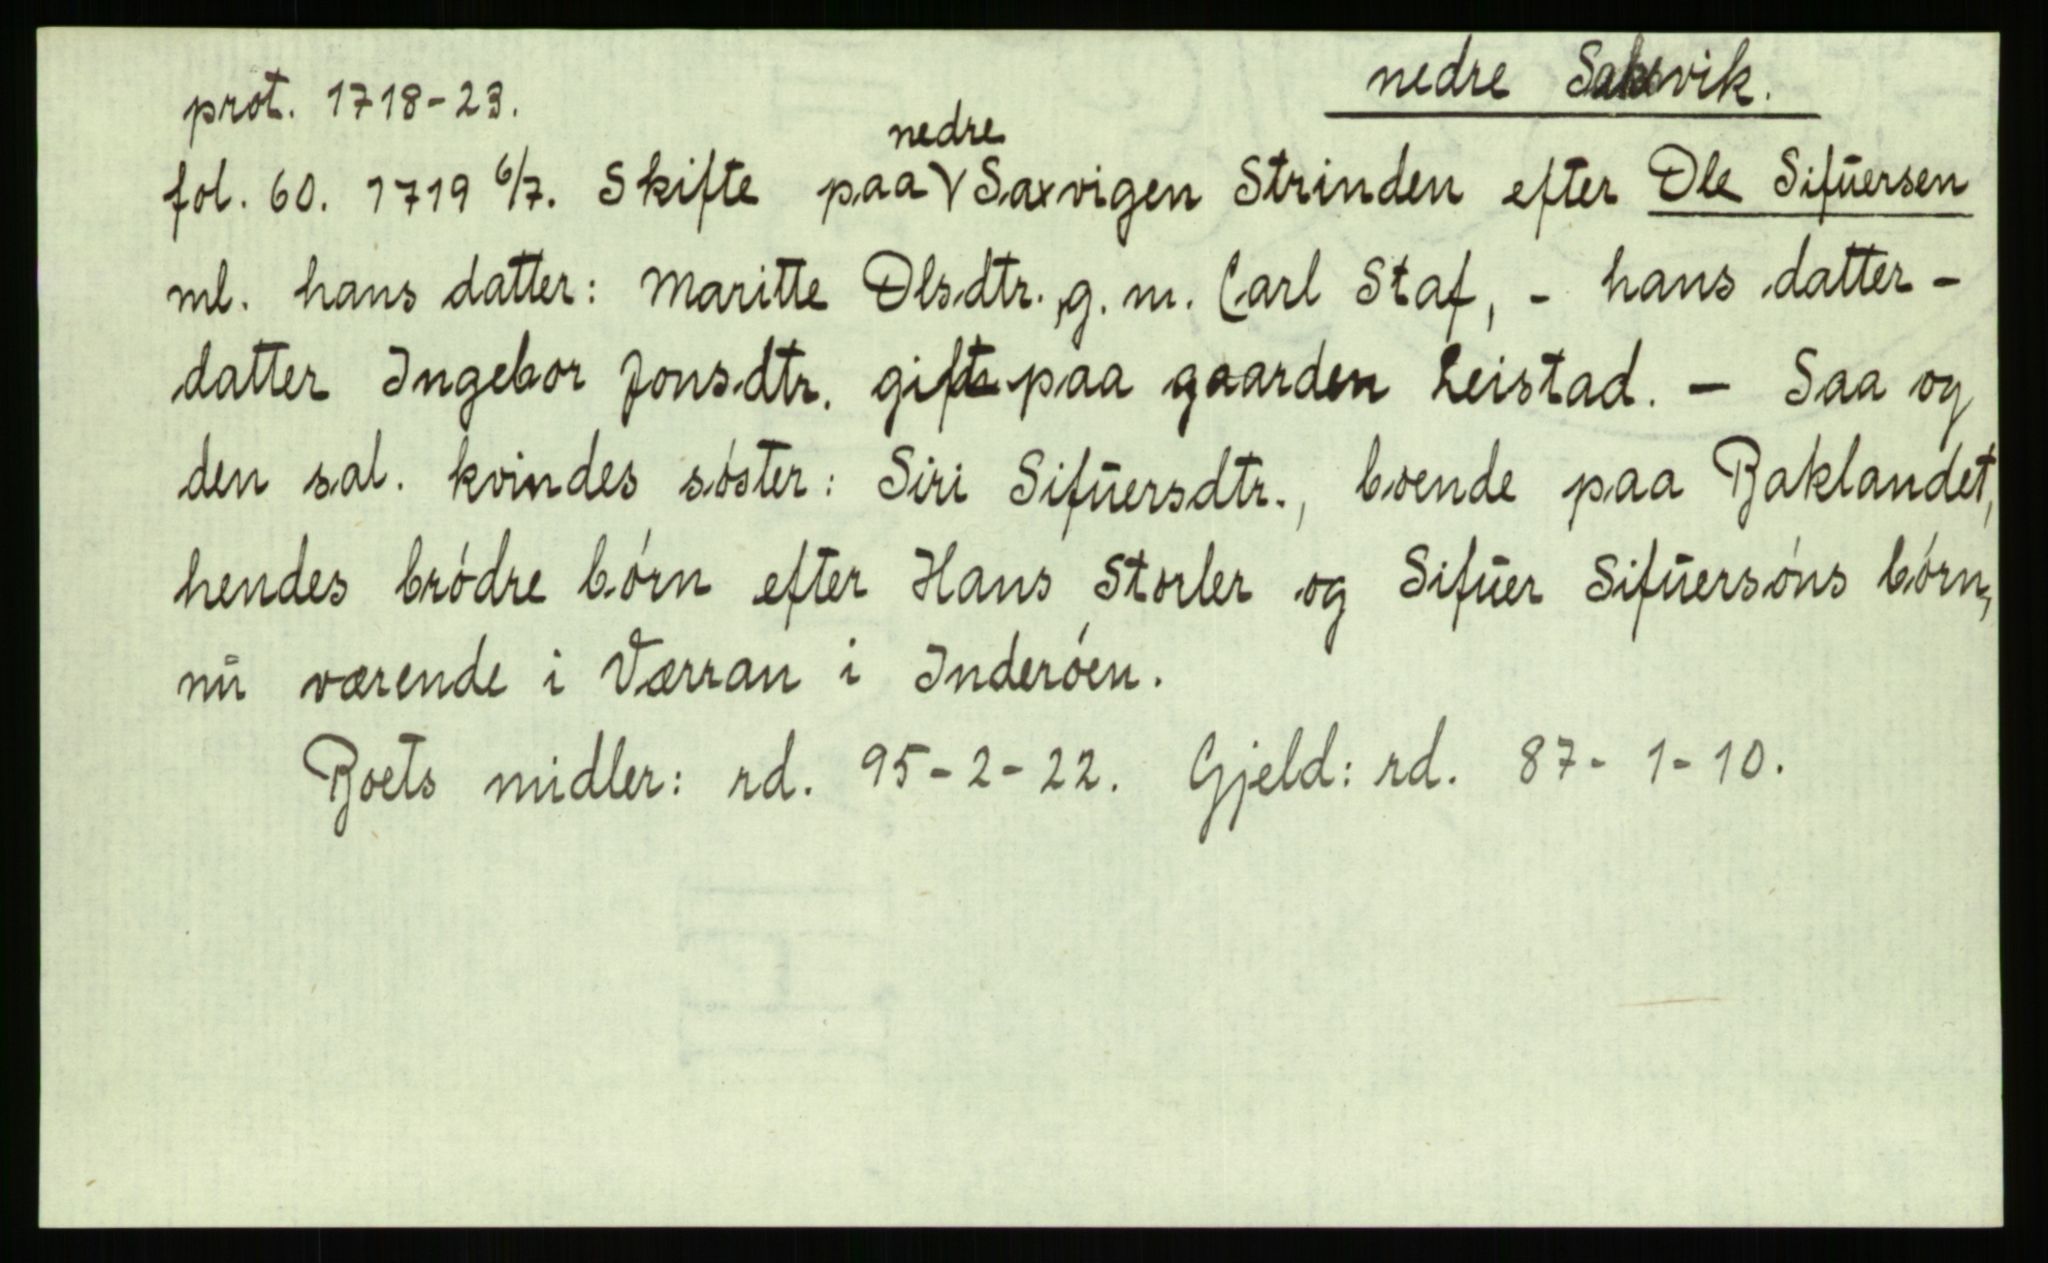 nedre Saksvik.
prot. 1718-23.
fol. 60. 1719 6/7. Skifte paa nedre Saxvigen Strinden efter Ole Sifuersen
ml. hans datter: Maritte Olsdtr. g. m. Carl Staf, - hans datter-
datter Ingebor Jonsdtr. gift paa gaarden Leistad. — Saa og
den sal. kvindes søster: Siri Sifuersdtr., boende paa Baklandet,
hendes brødre børn efter Hans Storler og Sifuer Sifuersøns børn,
nu værende i Værran i Inderøen.
Boets midler: rd. 95-2-22. Gjeld: rd. 87-1-10.